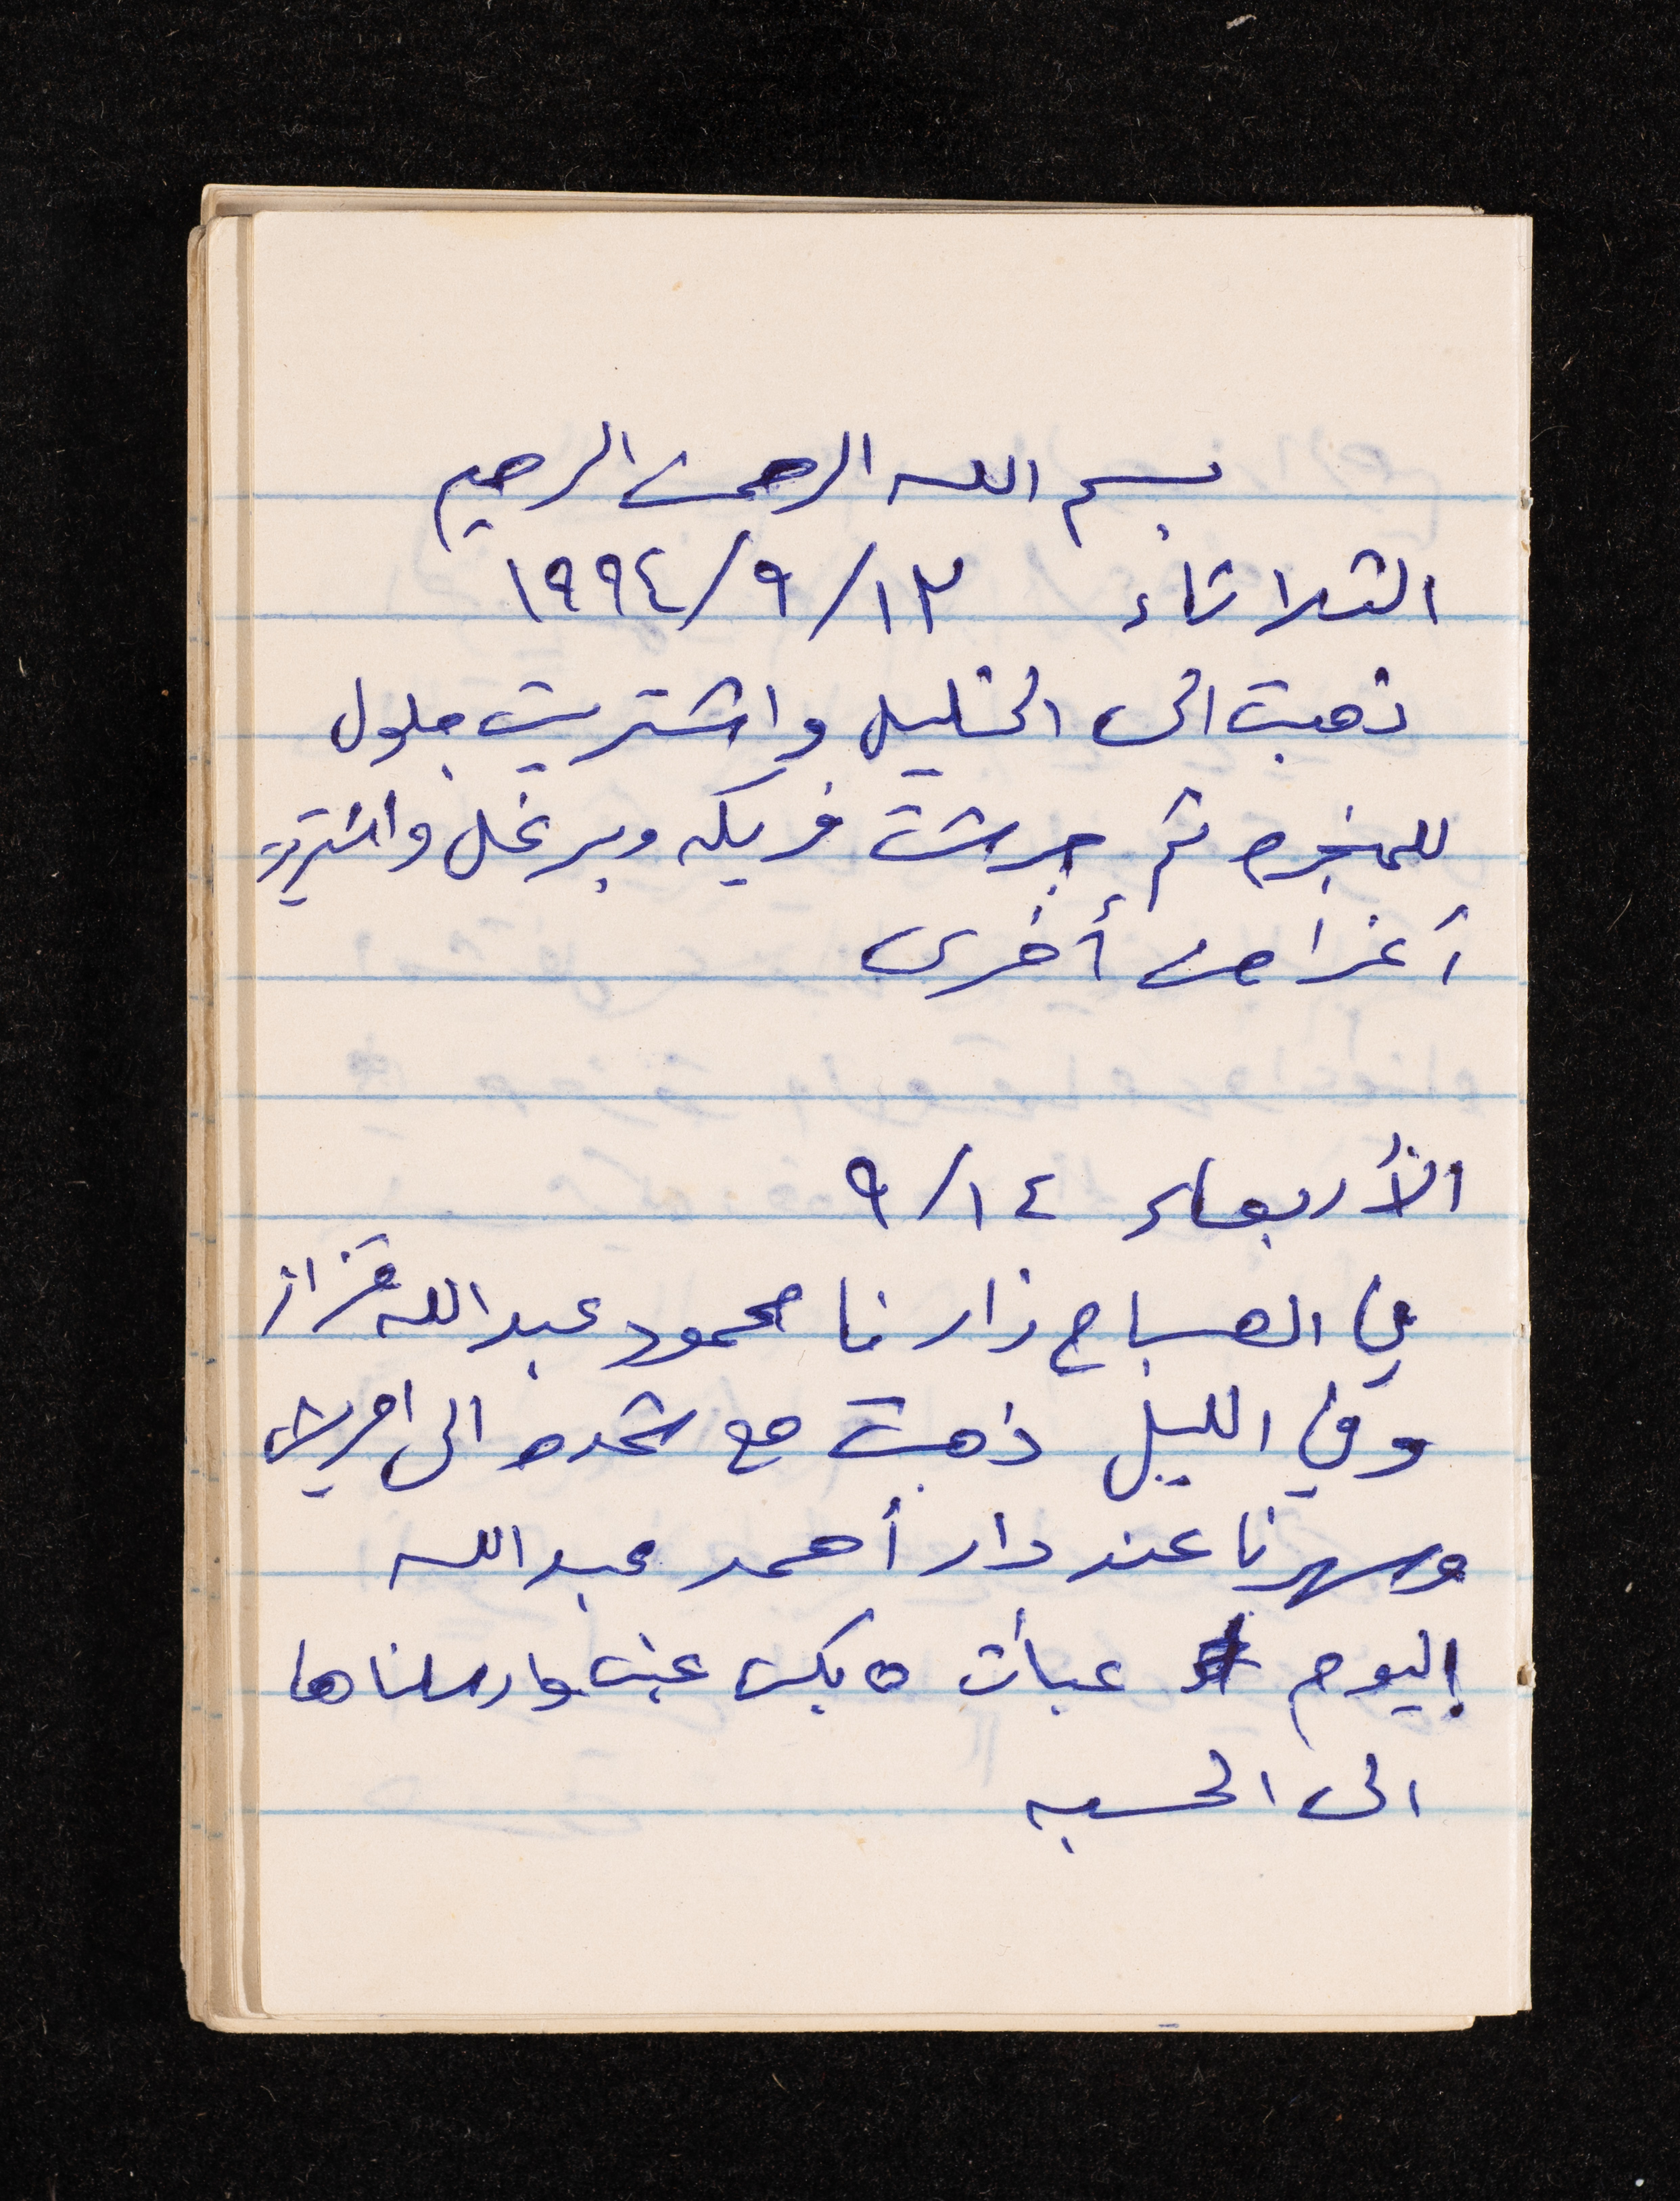 بسم الله الرحمن الرحيم
الثلاثاء ١٣/٩/١٩٩٤
ذهبت الى الخليل واشتريت جلول
للمنجره ثم جرشت فريكه وبرغل واشتريت
أغراض أخرى
الأربعاء ١٤/٩
في الصباح زارنا محمود عبدالله قزاز
وفي الليل ذهبت مع شحده الى امريش
وسهرنا عند دار أحمد عبدالله
اليوم عبأت ٥ بكس عنب وارسلناها
الى الحسبه